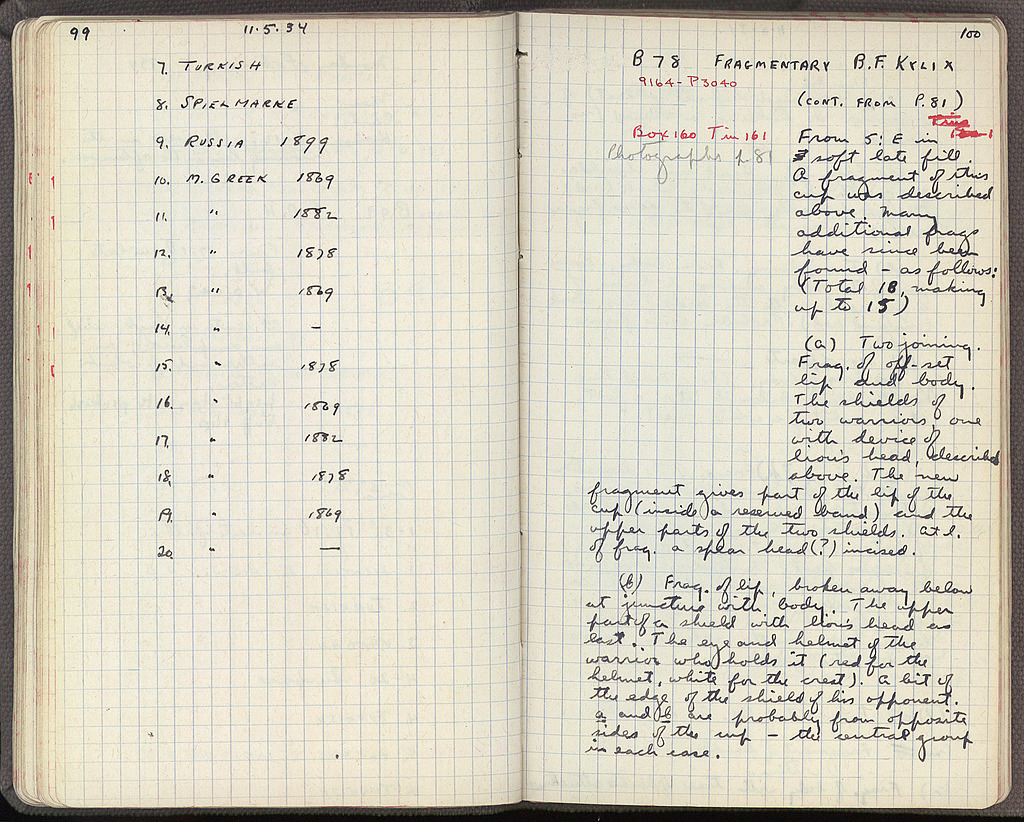 99
11.5.34
7. TURKISH
8. SPIELMARKE
9. RUSSIA 1899
10. M. GREEK 1869
11. " 1882
12. " 1878
13. " 1869
14. " —
15. " 1878
16. " 1869
17. " 1882
18. " 1878
19. " 1869
20. " —
100
B 78 FRAGMENTARY B.F. KYLIX
9164 - P3040
(CONT. FROM P. 81)
Box 160 Tin 161
Photographs p. 81
From 5: E in
soft late fill.
A fragment of this
cup was described
above. Many
additional frags
have since been
found - as follows:
(Total 18, making
up to 15)
(a) Two joining.
Frag. of off-set
lip and body.
The shields of
two warriors, one
with device of
lion's head, described
above. The new
fragment gives part of the lip of the
cup (inside a reserved band) and the
upper parts of the two shields. At l.
of frag. a spear head (?) incised.
(b) Frag. of lip, broken away below
at juncture with body. The upper
part of a shield with lion's head as
last. The eye and helmet of the
warrior who holds it (red for the
helmet, white for the crest). A bit of
the edge of the shield of his opponent.
a and b are probably from opposite
sides of the cup - the central group
in each case.